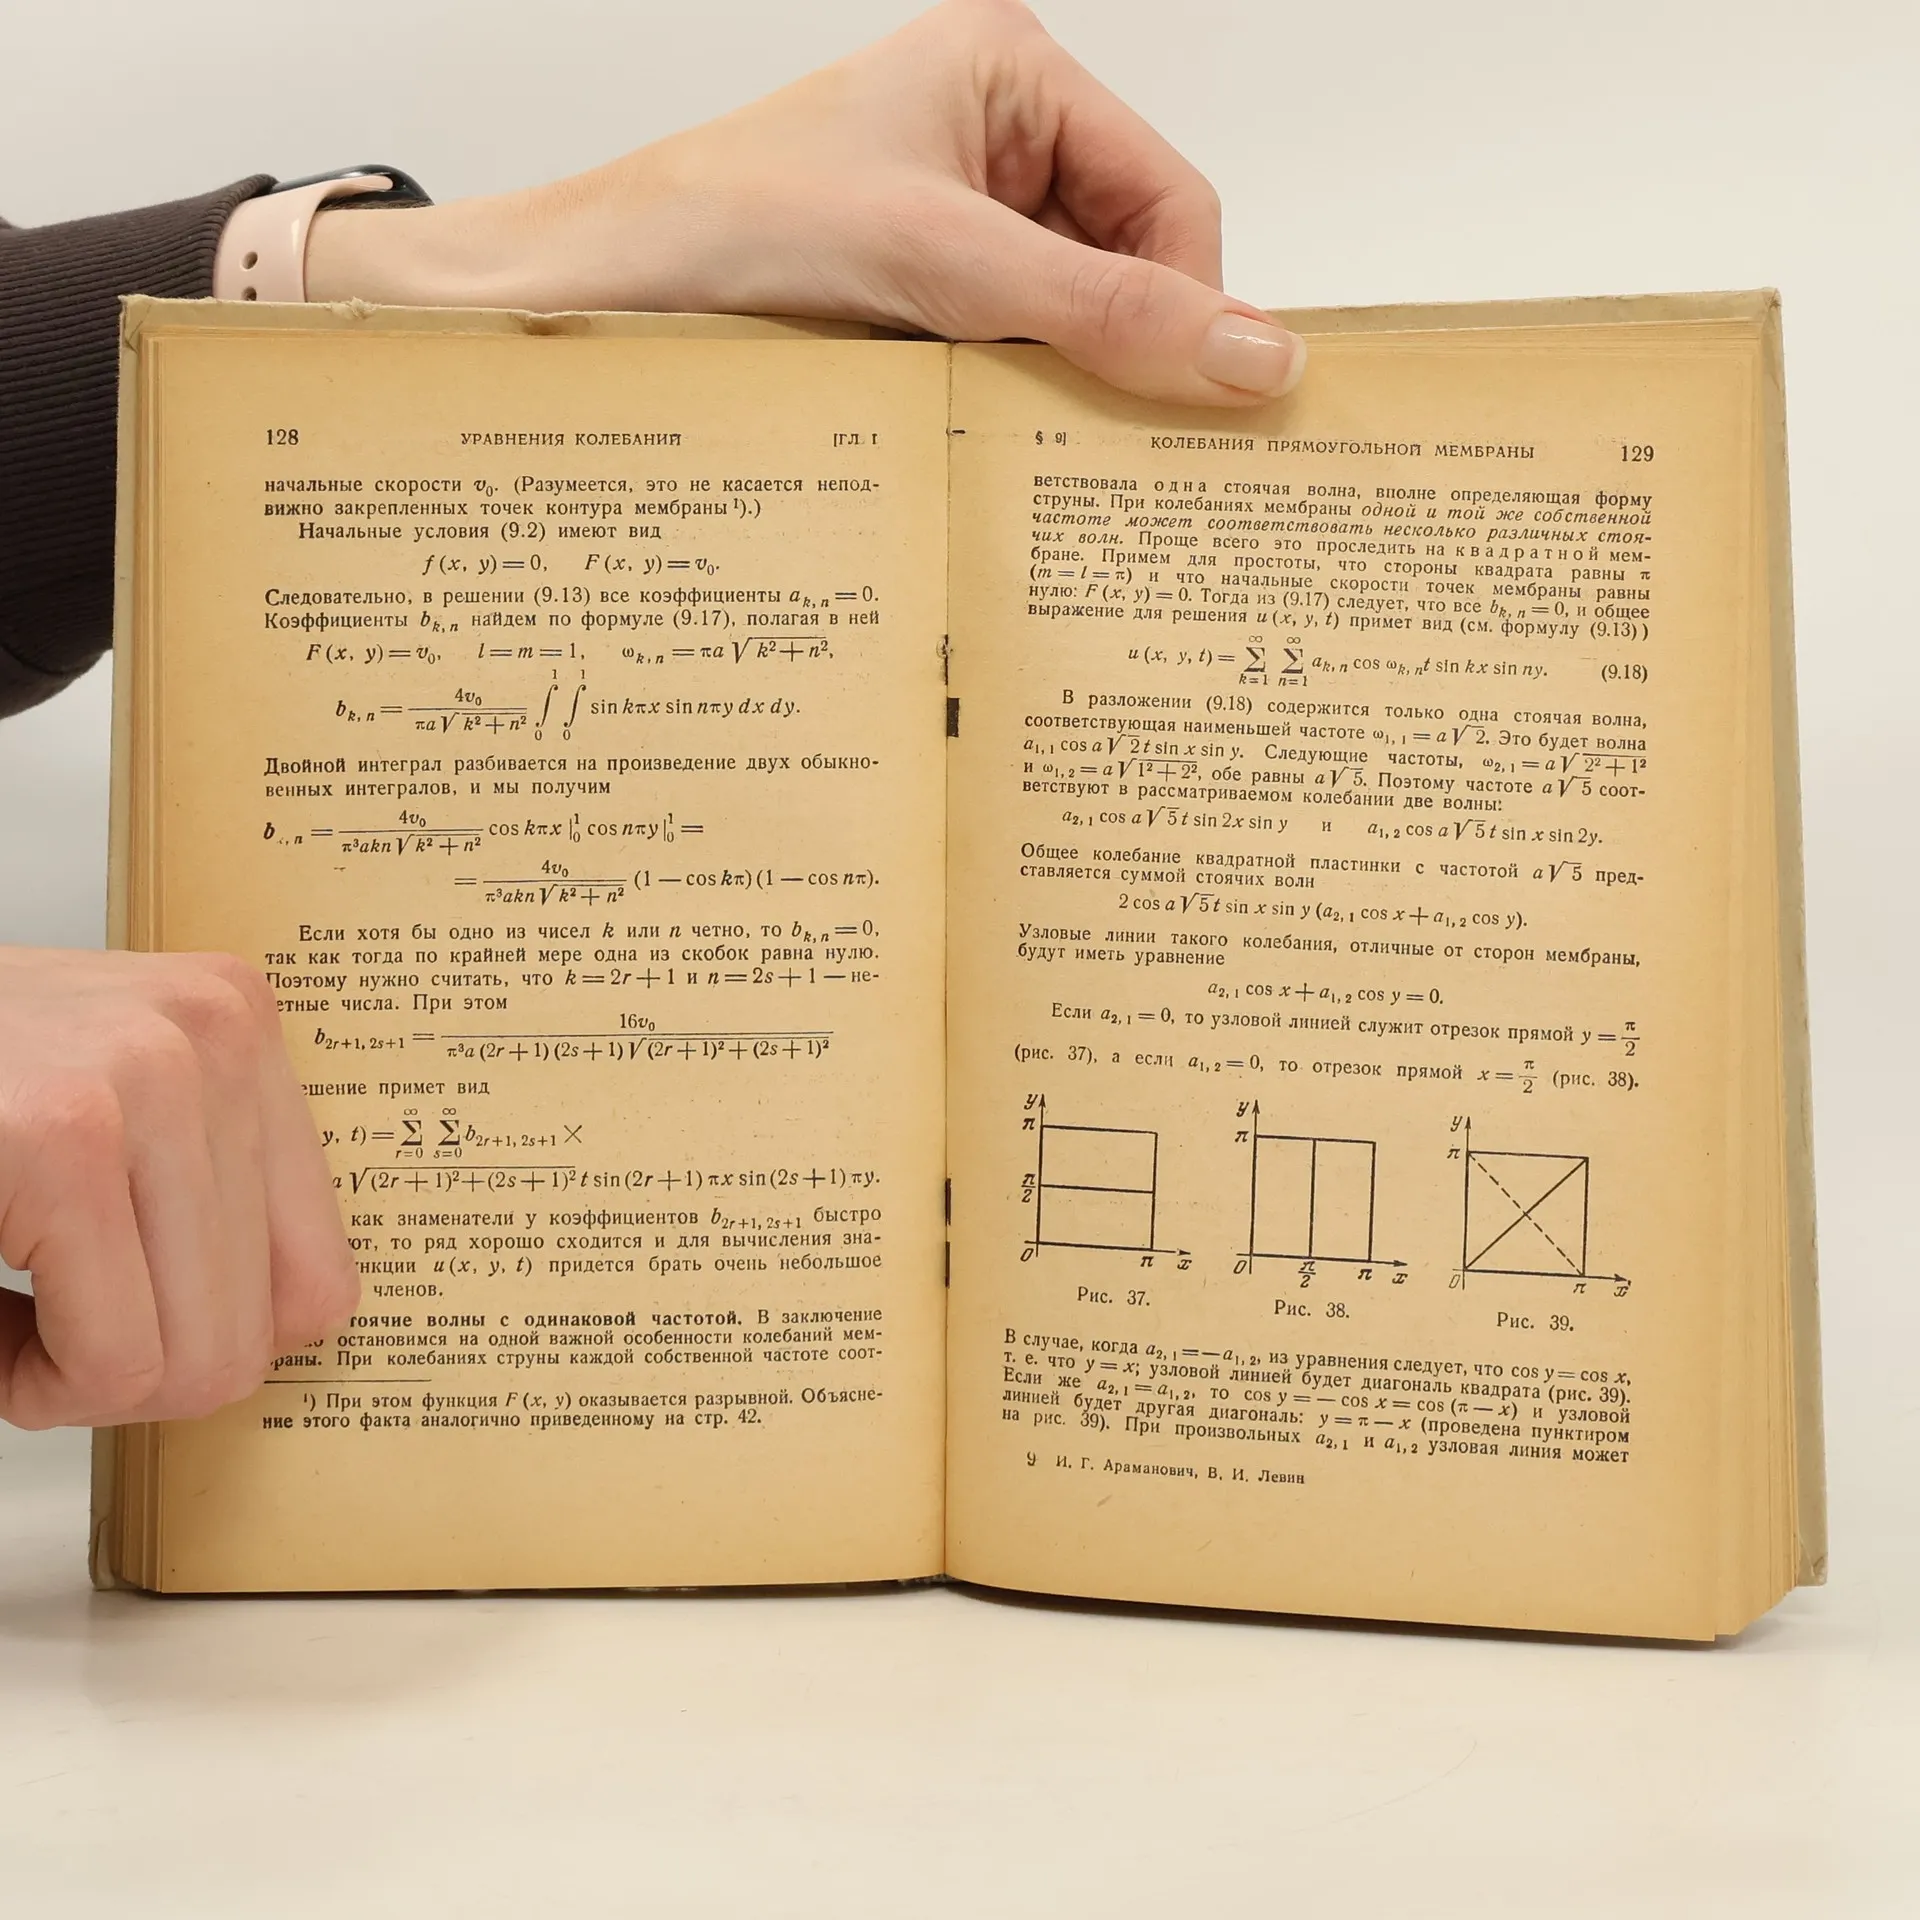 128 УРАВНЕНИЯ КОЛЕБАНИЙ [ГЛ. I
начальные скорости v₀. (Разумеется, это не касается непод-
вижно закрепленных точек контура мембраны ¹).)
Начальные условия (9.2) имеют вид
f(x, y) = 0, F(x, y) = v₀.
Следовательно, в решении (9.13) все коэффициенты a_{k, n} = 0.
Коэффициенты b_{k, n} найдем по формуле (9.17), полагая в ней
F(x, y) = v₀, l = m = 1, ω_{k, n} = πa √(k² + n²),
b_{k, n} = 4v₀ / (πa √(k² + n²)) ∫₀¹ ∫₀¹ sin kπx sin nπy dx dy.
Двойной интеграл разбивается на произведение двух обыкно-
венных интералов, и мы получим
b_{k, n} = 4v₀ / (π³akn √(k² + n²)) cos kπx |₀¹ cos nπy |₀¹ =
= 4v₀ / (π³akn √(k² + n²)) (1 — cos kπ) (1 — cos nπ).
Если хотя бы одно из чисел k или n четно, то b_{k, n} = 0,
так как тогда по крайней мере одна из скобок равна нулю.
Поэтому нужно считать, что k = 2r + 1 и n = 2s + 1 — не-
етные числа. При этом
b_{2r+1, 2s+1} = 16v₀ / (π³a (2r + 1) (2s + 1) √((2r + 1)² + (2s + 1)²))
ешение примет вид
y, t) = ∑_{r=0}^∞ ∑_{s=0}^∞ b_{2r+1, 2s+1} ×
a √((2r + 1)² + (2s + 1)²) t sin (2r + 1) πx sin (2s + 1) πy.
как знаменатели у коэффициентов b_{2r+1, 2s+1} быстро
ют, то ряд хорошо сходится и для вычисления зна-
нкции u(x, y, t) придется брать очень небольшое
членов.
тоячие волны с одинаковой частотой. В заключение
остановимся на одной важной особенности колебаний мем-
раны. При колебаниях струны каждой собственной частоте соот-
¹) При этом функция F (x, y) оказывается разрывной. Объясне-
ние этого факта аналогично приведенному на стр. 42.
§ 9] КОЛЕБАНИЯ ПРЯМОУГОЛЬНОЙ МЕМБРАНЫ 129
ветствовала одна стоячая волна, вполне определяющая форму
струны. При колебаниях мембраны одной и той же собственной
частоте может соответствовать несколько различных стоя-
чих волн. Проще всего это проследить на квадратной мем-
бране. Примем для простоты, что стороны квадрата равны π
(m = l = π) и что начальные скорости точек мембраны равны
нулю: F (x, y) = 0. Тогда из (9.17) следует, что все b_{k, n} = 0, и общее
выражение для решения u (x, y, t) примет вид (см. формулу (9.13))
u (x, y, t) = ∑_{k=1}^∞ ∑_{n=1}^∞ a_{k, n} cos ω_{k, n}t sin kx sin ny. (9.18)
В разложении (9.18) содержится только одна стоячая волна,
соответствующая наименьшей частоте ω_{1, 1} = a √2. Это будет волна
a_{1, 1} cos a √2 t sin x sin y. Следующие частоты, ω_{2, 1} = a √(2² + 1²)
и ω_{1, 2} = a √(1² + 2²), обе равны a √5. Поэтому частоте a √5 соот-
ветствуют в рассматриваемом колебании две волны:
a_{2, 1} cos a √5 t sin 2x sin y и a_{1, 2} cos a √5 t sin x sin 2y.
Общее колебание квадратной пластинки с частотой a √5 пред-
ставляется суммой стоячих волн
2 cos a √5 t sin x sin y (a_{2, 1} cos x + a_{1, 2} cos y).
Узловые линии такого колебания, отличные от сторон мембраны,
будут иметь уравнение
a_{2, 1} cos x + a_{1, 2} cos y = 0.
Если a_{2, 1} = 0, то узловой линией служит отрезок прямой y = π/2
(рис. 37), а если a_{1, 2} = 0, то отрезок прямой x = π/2 (рис. 38).
y π π/2 0 π x
y π 0 π/2 π x
y π 0 π x
Рис. 37. Рис. 38. Рис. 39.
В случае, когда a_{2, 1} = — a_{1, 2}, из уравнения следует, что cos y = cos x,
т. е. что y = x; узловой линией будет диагональ квадрата (рис. 39).
Если же a_{2, 1} = a_{1, 2}, то cos y = — cos x = cos (π — x) и узловой
линией будет другая диагональ: y = π — x (проведена пунктиром
на рис. 39). При произвольных a_{2, 1} и a_{1, 2} узловая линия может
9 И. Г. Араманович, В. И. Левин